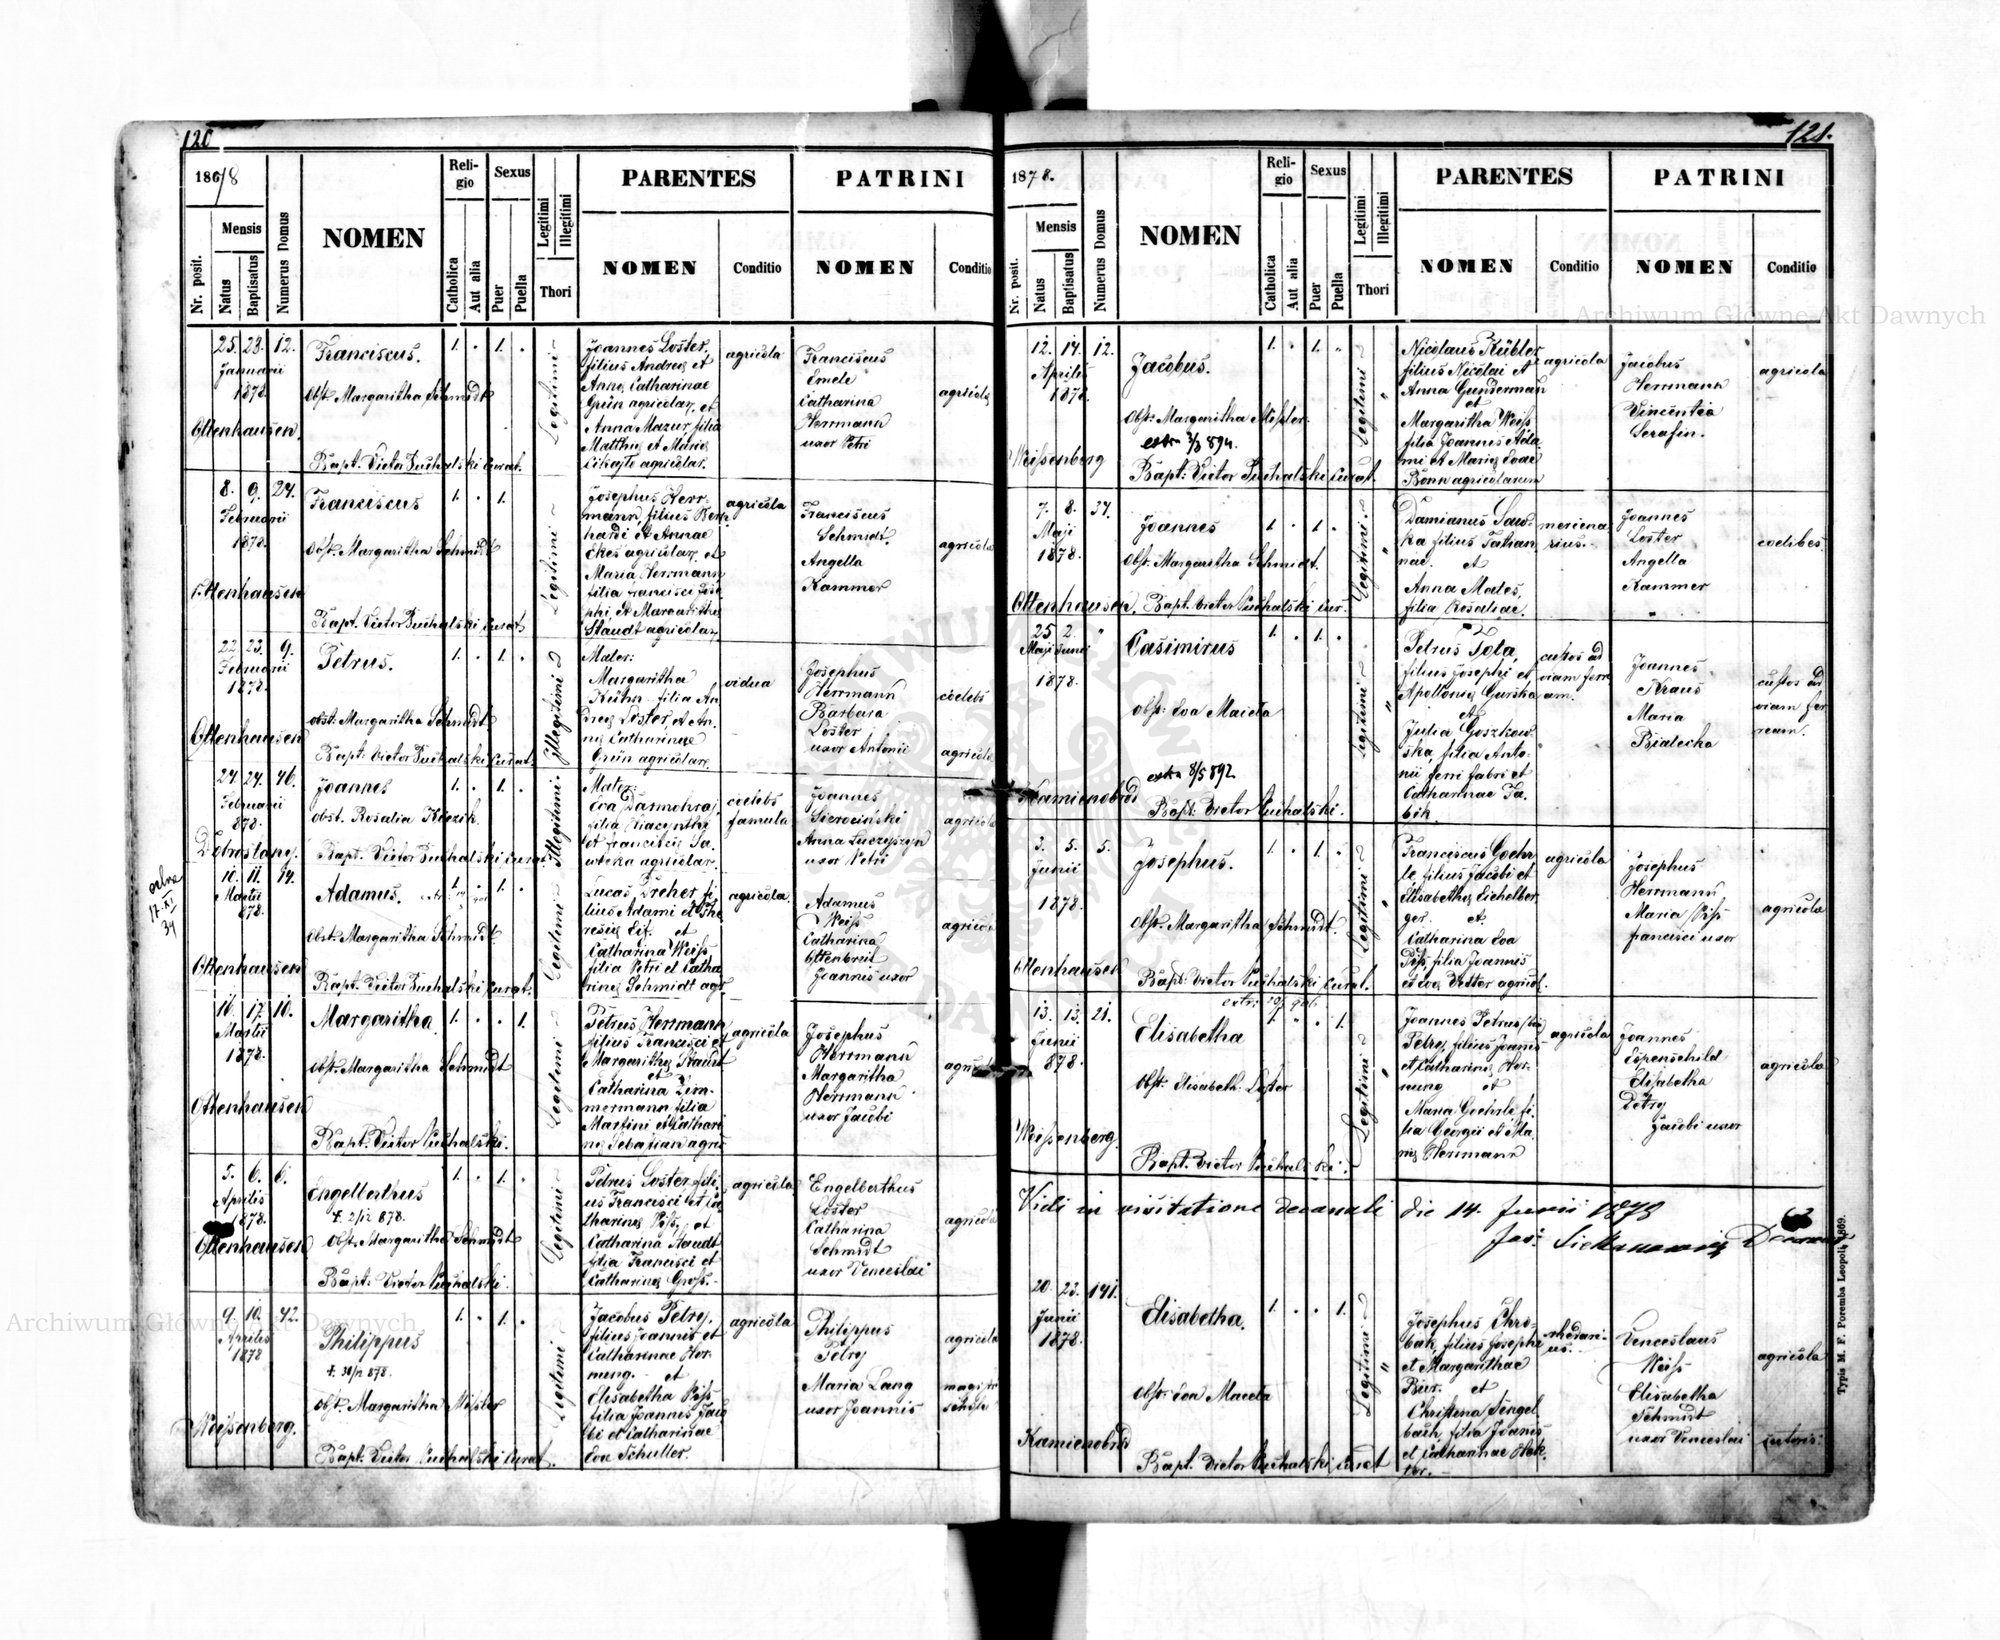 120
1878
Nr. posit.
Mensis
Natus
Baptisatus
Numerus Domus
NOMEN
Religio
Catholica
Aut alia
Sexus
Puer
Puella
Legitimi
Illegitimi
Thori
PARENTES
NOMEN
Conditio
PATRINI
NOMEN
Conditio
25. 28. 12.
Januarii
1878.
Ottenhausen.
Franciscus.
Obst. Margaritha Schmidt
Bapt. Victor Puchalski Curat.
1. . 1. .
Legitimi
Joannes Loster,
filius Andreę et
Annę Catharinae
Grün agricolar. et
Anna Mazur filia
Matthię et Marię
agricolar.
agricola
Franciscus
Emele
Catharina
Herrmann
uxor Petri
agricola
8. 9. 24.
Februarii
1878.
Ottenhausen
Franciscus
Obst. Margaritha Schmidt
Bapt. Victor Puchalski Curat.
1. . 1.
Legitimi
Josephus Herr-
mann, filius Bern
hardi et Annae
Ekes agricolar. et
Maria Herrmann
filia Francisci Jose
phi, et Margarithę
Staudt agricolar.
agricola
Franciscus
Schmidt.
Angella
Kammer
agricola
22. 23. 9.
Februarii
1878.
Ottenhausen
Petrus.
Obst. Margaritha Schmidt
Bapt. Victor Puchalski Curat.
1. . 1. .
Illegitimi
Mater:
Margaritha
Kühn filia An
dreę Loster et An
nę Catharinae
Grün agricolar.
vidua
Josephus
Herrmann
Barbara
Loster
uxor Antonii
coelebs
agricola
24. 24. 46.
Februarii
878.
Dobrostany.
Joannes
Obst. Rosalia
Bapt. Victor Puchalski Curat.
1. . 1. .
Illegitimi
Mater:
Eva Darmohraj
filia Hiacynthi
et Francisce
agricolar.
coelebs
famula
Joannes
Sierocinski
Anna Luczyszyn
uxor Petri
agricola
10. 11. 14.
Martii
878.
Ottenhausen
Adamus.
Obst. Margaritha Schmidt
Bapt. Victor Puchalski Curat.
1. . 1. .
Legitimi
Lucas Dreher fi
lius Adami et The
resię et
Catharina Weiss
filia Petri et Catha
rinę Schmidt agr.
agricola.
Adamus
Weiss
Catharina
Ottenbreit
Joannis uxor
agricola
16. 17. 10.
Martii
1878.
Ottenhausen
Margaritha
Obst. Margaritha Schmidt
Bapt. Victor Puchalski.
1. . . 1.
Legitimi
Petrus Herrmann
filius Francisci et
Margarithę Staudt
et
Catharina Zim-
mermann, filia
Martini et Cathari
nę Sebastian agric
agricola
Josephus
Herrmann
Margaritha
Herrmann
uxor Jacobi
5. 6. 6.
Aprilis
1878.
Ottenhausen
Engelberthus
†. 2/12 878.
Obst. Margaritha Schmidt
Bapt. Victor Puchalski.
1. . 1. .
Legitimi
Petrus Loster fili-
us Francisci et Ca
tharinę Piss, et
Catharina Staudt
filia Francisci et
Catharinę Gross.
agricola
Engelberthus
Loster
Catharina
Schmidt
uxor Venceslai
agricola
9. 10. 42.
Aprilis
1878
Weissenberg.
Philippus
†. 30/12 878.
Obst. Margaritha Missler
Bapt. Victor Puchalski Curat.
1. . 1. .
Legitimi
Jacobus Petry,
filius Joannis et
Catharinae Hor-
nung. et
Elisabetha Piss
filia Joannis Jaco
bi et Catharinae
Eva Schuller.
agricola
Philippus
Petry
Maria Lang
uxor Joannis
agricola
121.
1878.
Nr. posit.
Mensis
Natus
Baptisatus
Numerus Domus
NOMEN
Religio
Catholica
Aut alia
Sexus
Puer
Puella
Legitimi
Illegitimi
Thori
PARENTES
NOMEN
Conditio
PATRINI
NOMEN
Conditio
12. 14. 12.
Aprilis
1878.
Weissenberg
Jacobus.
Obst. Margaritha Missler
extr. 3/3 894.
Bapt: Victor Puchalski Curat.
1. . 1. "
Legitimi
Nicolaus Kübler
filius Nicolai et
Anna Gunderman
et
Margaritha Weiss
filia Joannis Ada
mi et Marię Evae
Bonn agricolarum
agricola
Jacobus
Herrmann
Vincentia
Serafin.
agricola
7. 8. 37.
Maji
1878.
Ottenhausen.
Joannes
Obst. Margaritha Schmidt.
Bapt. Victor Puchalski Cur.
1. . 1. .
Legitimi
Damianus Saw-
ka filius Tatian
nae. et
Anna Males,
filia Rosaliae.
mercena
rius.
Joannes
Loster
Angella
Kammer
coelibes.
25 2. "
Maji Junii
1878.
Kamienobród
Casimirus
Obst: Eva Macieta
extr. 8/5 892.
Bapt. Victor Puchalski.
1. . 1. .
Legitimi
Petrus Tota,
filius Josephi et
Apollonię Gurska
et
Julia Goszkow-
ska, filia Anto-
nii ferri fabri et
Catharinae Ja-
bik.
custos ad
viam ferre
am.
Joannes
Kraus
Maria
Bialecka
custos ad
viam fer
ream.
3. 5. 5.
Junii
1878.
Ottenhausen
Josephus.
Obst. Margaritha Schmidt.
Bapt: Victor Puchalski Curat.
1. . 1. .
Legitimi
Franciscus Goehr
le, filius Jacobi et
Elisabethę Eichelber
ger. et
Catharina Eva
Piss, filia Joannis
et Evę Vetter agricol.
agricola
Josephus
Herrmann
Maria Piss
Francisci uxor
agricola
13. 13. 21.
Junii
878.
Weissenberg.
Elisabetha
Obst: Elisabeth. Loster
Bapt. Victor Puchalski.
1. " . 1.
Legitimi
Joannes Petrus
Petry, filius Joannis
et Catharinę Hor-
nung et
Maria Goehrle fi-
lia Georgii et Ma-
rię Herrmann
agricola
Joannes
Espenschild
Elisabetha
Petry
Jacobi uxor
agricola
Vidi in visitatione decanali die 14. Junii 1878
20. 23. 141.
Junii
1878.
Kamienobród
Elisabetha.
Obst: Eva Macieta
Bapt. Victor Puchalski Curat
1. . . 1.
Legitimi
Josephus Chro-
bak, filius Josephi
et Margarithae
Bier. et
Christina Singel
bach, filia Joannis
et Catharinae
rhedari-
us.
Venceslaus
Weiss
Elisabetha
Schmidt
uxor Venceslai
agricola
sutoris.
Typis M. F. Poremba Leopoli, 1869.
Archiwum Główne Akt Dawnych
Archiwum Główne Akt Dawnych